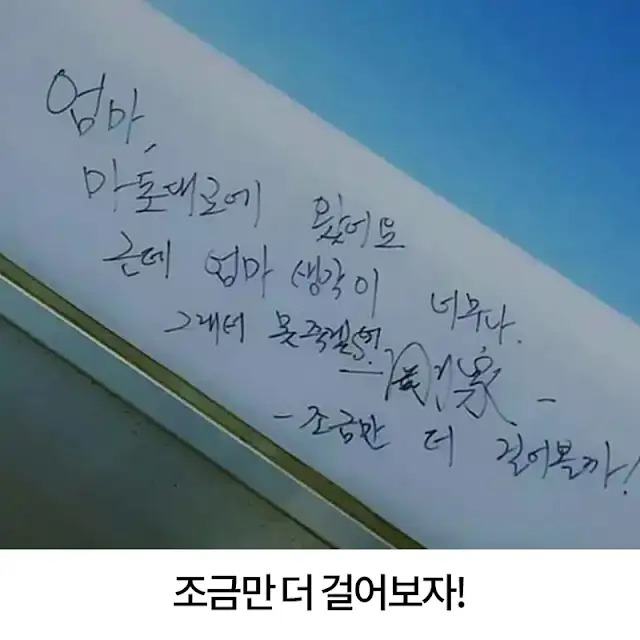 엄마,
마포대교에 왔어요
근데 엄마 생각이 너무나.
그래서 못죽겠어!
- 조금만 더 걸어볼까!
조금만 더 걸어보자!